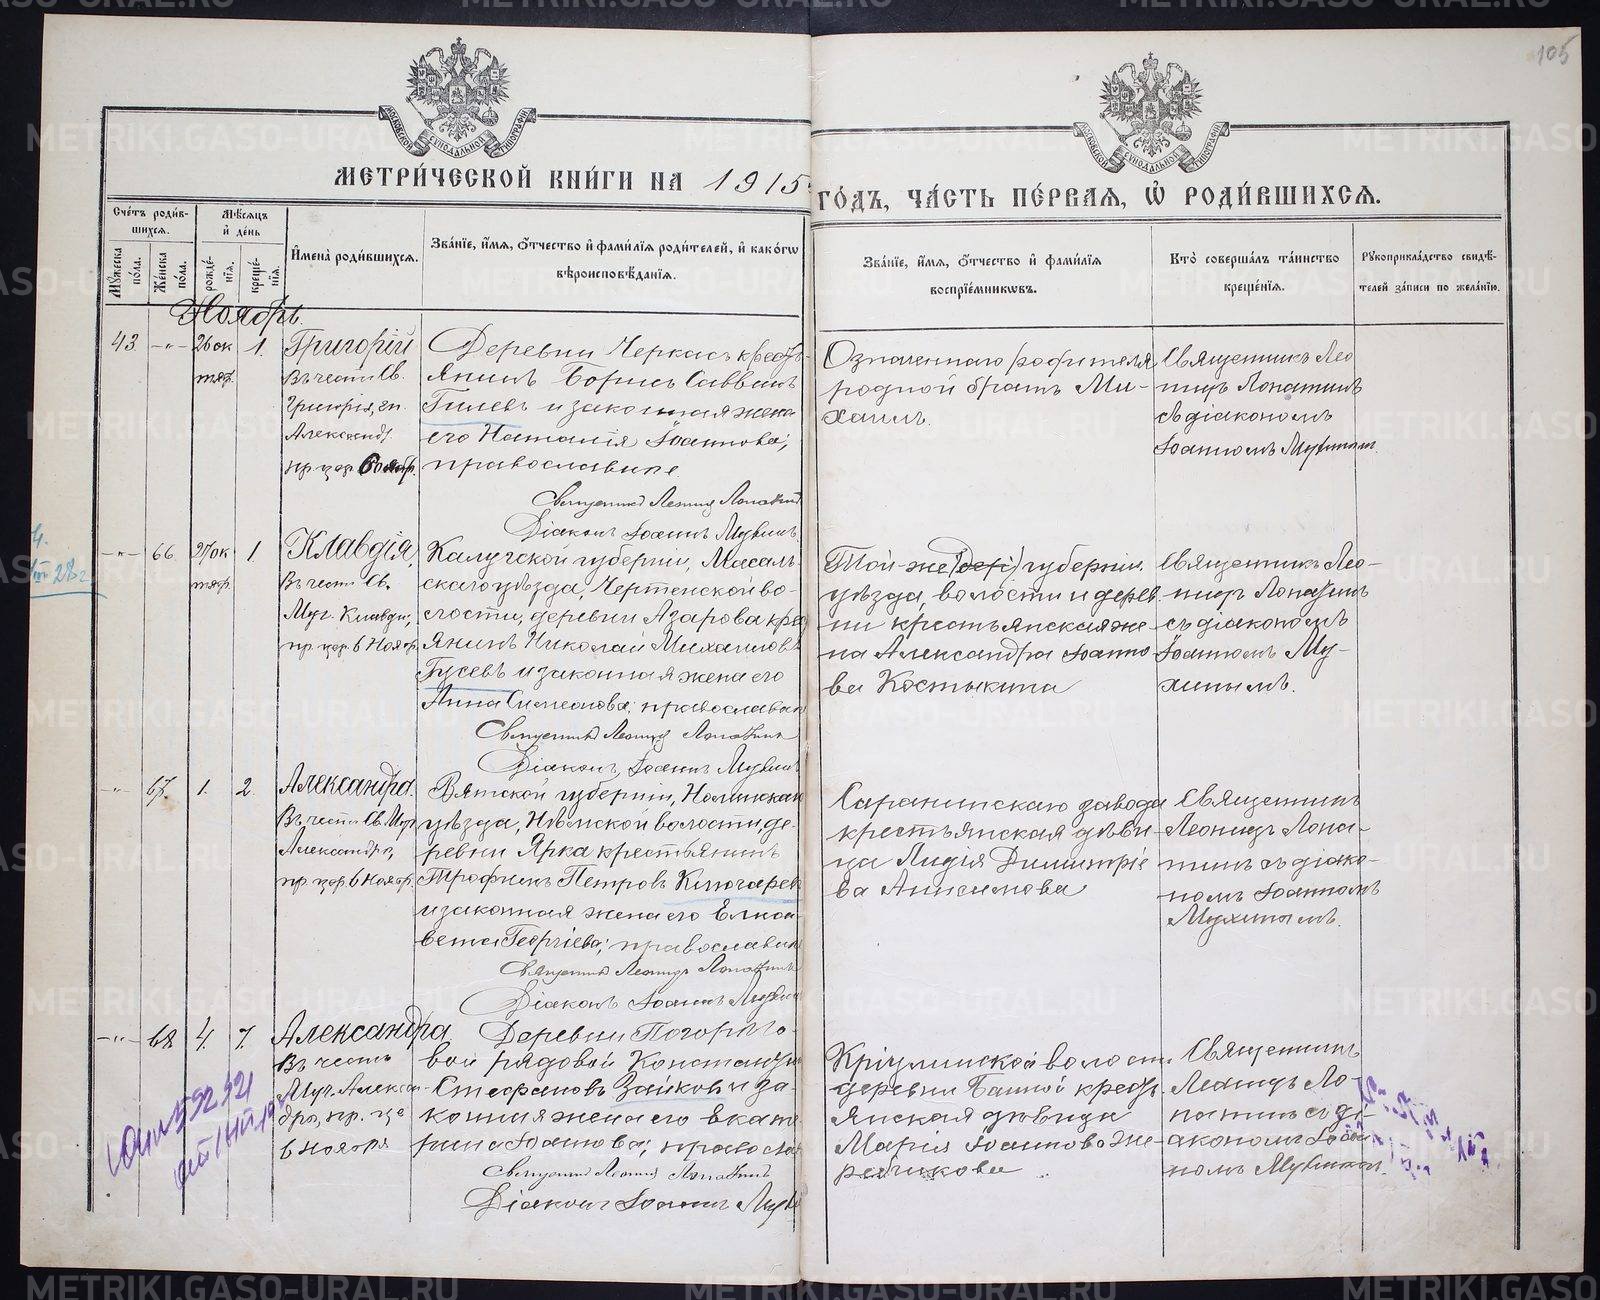 105
МЕТРИ́ЧЕСКОЙ КНИ́ГИ НА 1915
ГО́ДЪ, ЧА́СТЬ ПЕ́РВАѦ, Ѡ҆ РОДИ́ВШИХСѦ.
Сче́тъ роди́в-
шихсѧ.
Мѣ́сѧцъ
и҆ де́нь
Мꙋ́жеска по́ла.
Же́нска по́ла.
рожде́-
нїѧ.
креще́-
нїѧ.
И҆мена̀ роди́вшихсѧ.
Зва́нїе, и҆́мѧ, ѻ҆́тчество и҆ фами́лїѧ роди́телей, и҆ како́гѡ
вѣроисповѣ́данїѧ.
Зва́нїе, и҆́мѧ, ѻ҆́тчество и҆ фами́лїѧ
воспрїе́мникѡвъ.
Кто̀ соверша́лъ та́инство
креще́нїѧ.
Рꙋкоприкла́дство свидѣ́-
телей за́писи по жела́нїю.
Ноябрь.
43 -"- 26 ок
тяб. 1.
Григорій
Въ честь Св.
Григорія, еп.
Александр.
пр. цер. 6 Ноябр.
Деревни Черкасъ крест-
янинъ Борисъ Саввинъ
Гилевъ и законная жена
его Наталія Іоаннова;
православные
Священникъ Леонидъ Лопатинъ
Діаконъ Іоаннъ Мухинъ
Означеннаго родителя
родной братъ Ми-
хаилъ.
Священникъ Лео
нидъ Лопатинъ
съ діакономъ
Іоанномъ Мухинымъ.
-"- 66 27 ок
тяб. 1
Клавдія,
Въ честь Св.
Муч. Клавдіи,
пр. цер. 6 Ноябр.
Калужской губерніи, Масаль-
скаго уѣзда, Чертенской во-
лости, деревни Азарова крес
янинъ Николай Михаиловъ
Гусевъ и законная жена его
Анна Симеонова; православн
Священникъ Леонидъ Лопатинъ
Діаконъ Іоаннъ Мухинъ
Той-же губерніи
уѣзда, волости и дерев
ни крестьянская же
на Александра Іоанно
ва Костыкина
Священникъ Лео-
нидъ Лопатинъ
съ діакономъ
Іоанномъ Му-
хинымъ.
-"- 67. 1. 2.
Александра.
Въ честь Св. Муч.
Александры,
пр. цер. 6 Ноябр.
Вятской губерніи, Нолинскаго
уѣзда, Нѣмской волости, де-
ревни Ярка крестьянинъ
Трофимъ Петровъ Ключаревъ
и законная жена его Елиса-
вета Георгіева; православные
Священникъ Леонидъ Лопатинъ
Діаконъ Іоаннъ Мухинъ
Саранинскаго завода
крестьянская дѣви-
ца Лидія Димитріе
ва Анисимова
Священникъ
Леонидъ Лопа-
тинъ съ діако-
номъ Іоанномъ
Мухинымъ.
-"- 68 4. 7.
Александра
Въ честь
Муч. Алексан-
дры, пр. це
6 Ноября
Деревни Погорѣло-
вой рядовой Константинъ
Стефановъ Зайковъ и за-
конная жена его Екате-
рина Іоаннова; православ
Священникъ Леонидъ Лопатинъ
Діаконъ Іоаннъ Мухинъ
деревни Банной крестъ
янская дѣвица
Марія Іоаннова Же-
ребчикова
Священникъ
Леонидъ Ло-
патинъ съ ді-
акономъ Іоан
номъ Мухинымъ.
METRIKI.GASO-URAL.RU